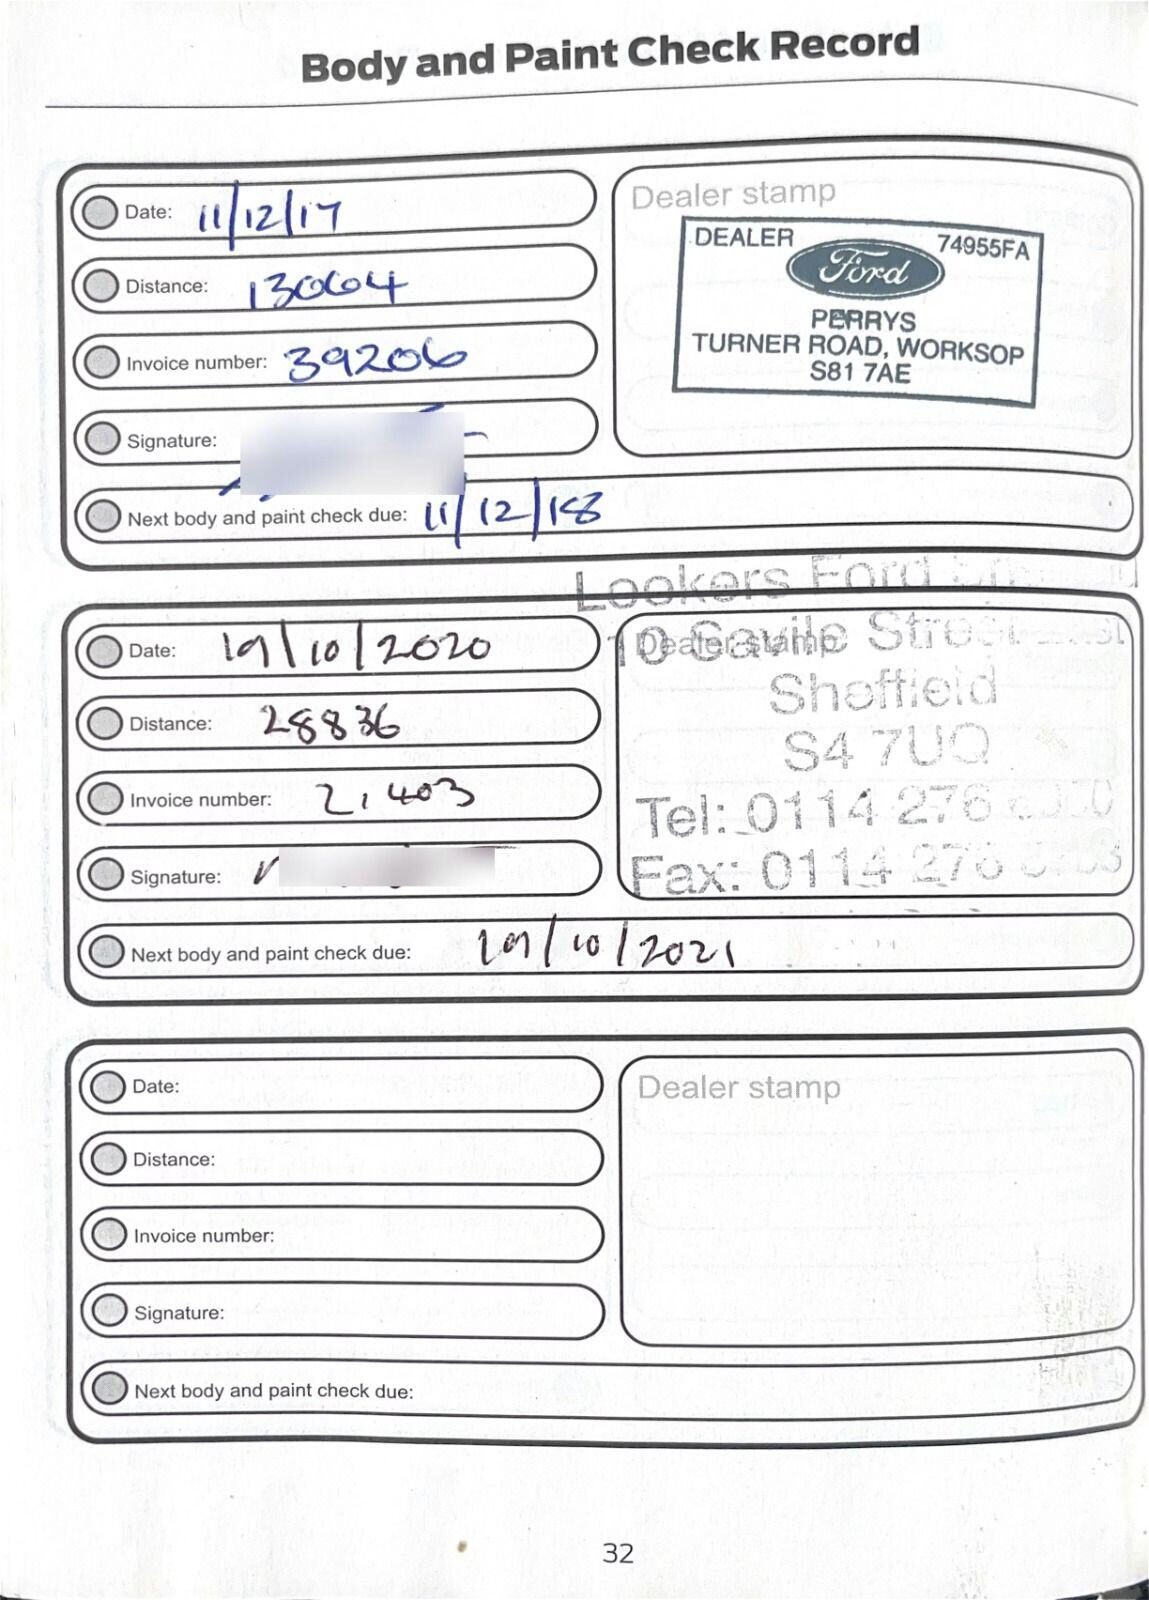 Body and Paint Check Record
Date: 11/12/17
Distance: 13064
Invoice number: 39206
Signature:
Next body and paint check due: 11/12/18
Dealer stamp
DEALER 74955FA
Ford
PERRYS
TURNER ROAD, WORKSOP
S81 7AE
Date: 19/10/2020
Distance: 28836
Invoice number: 21403
Signature:
Next body and paint check due: 19/10/2021
Dealer stamp
Lookers Ford
10 Savile Street
Sheffield
S4 7UQ
Tel: 0114 276
Fax: 0114 276
Date:
Distance:
Invoice number:
Signature:
Next body and paint check due:
Dealer stamp
32